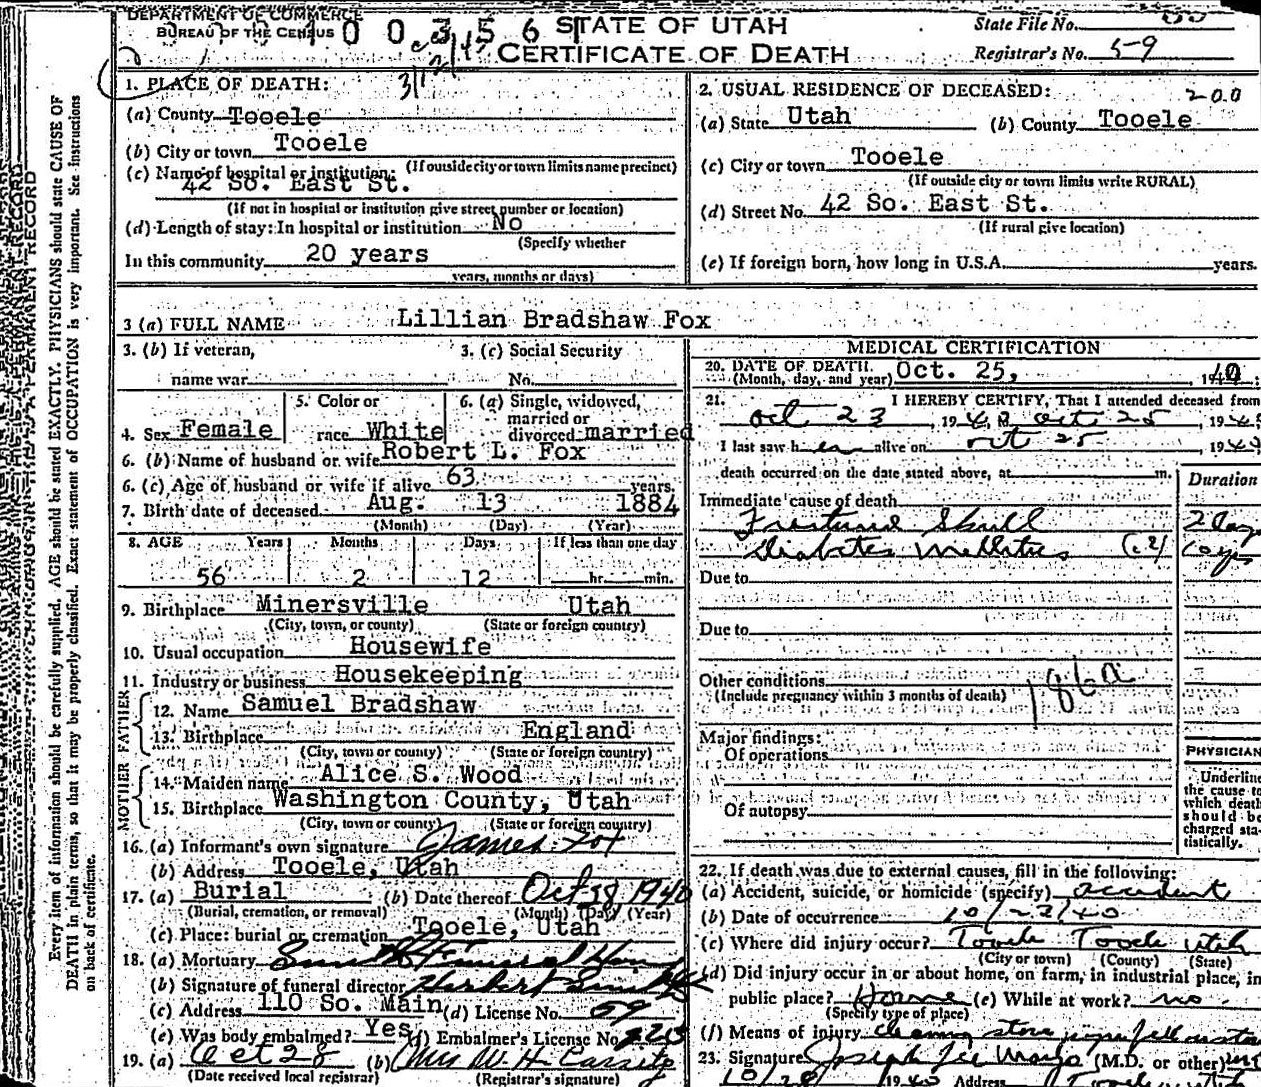 DEPARTMENT OF COMMERCE
BUREAU OF THE CENSUS
STATE OF UTAH
CERTIFICATE OF DEATH
State File No.
Registrar's No. 59
1. PLACE OF DEATH:
(a) County Tooele
(b) City or town Tooele
(If outside city or town limits name precinct)
(c) Name of hospital or institution:
42 So. East St.
(If not in hospital or institution give street number or location)
(d) Length of stay: In hospital or institution No
(Specify whether
In this community 20 years
years, months or days)
2. USUAL RESIDENCE OF DECEASED:
200
(a) State Utah (b) County Tooele
(c) City or town Tooele
(If outside city or town limits write RURAL)
(d) Street No. 42 So. East St.
(If rural give location)
(e) If foreign born, how long in U.S.A. years.
3 (a) FULL NAME Lillian Bradshaw Fox
3. (b) If veteran,
name war
3. (c) Social Security
No.
4. Sex Female
5. Color or
race White
6. (a) Single, widowed,
married or
divorced married
6. (b) Name of husband or wife Robert L. Fox
6. (c) Age of husband or wife if alive 63 years.
7. Birth date of deceased Aug. 13 1884
(Month) (Day) (Year)
8. AGE Years Months Days If less than one day
56 2 12 hr. min.
9. Birthplace Minersville Utah
(City, town, or county) (State or foreign country)
10. Usual occupation Housewife
11. Industry or business Housekeeping
FATHER
12. Name Samuel Bradshaw
13. Birthplace England
(City, town or county) (State or foreign country)
MOTHER
14. Maiden name Alice S. Wood
15. Birthplace Washington County, Utah
(City, town or county) (State or foreign country)
16. (a) Informant's own signature James Fox
(b) Address Tooele, Utah
17. (a) Burial (b) Date thereof Oct 28 1940
(Burial, cremation, or removal) (Month) (Day) (Year)
(c) Place: burial or cremation Tooele, Utah
18. (a) Mortuary Funeral Home
(b) Signature of funeral director Herbert
(c) Address 110 So. Main (d) License No. 59
(e) Was body embalmed? Yes (f) Embalmer's License No.
19. (a) Oct 28 (b) Mrs W. H. Cassity
(Date received local registrar) (Registrar's signature)
MEDICAL CERTIFICATION
20. DATE OF DEATH
(Month, day, and year) Oct. 25, 1940
21. I HEREBY CERTIFY, That I attended deceased from
oct 23, 1940, oct 25, 194
I last saw her alive on oct 25 1940
death occurred on the date stated above, at m.
Duration
Immediate cause of death
Fractured Skull 2 days
Diabetes Mellitus
Due to
Due to
Other conditions
(Include pregnancy within 3 months of death)
186a
Major findings:
Of operations
Of autopsy
PHYSICIAN
Underline
the cause to
which death
should be
charged sta-
tistically.
22. If death was due to external causes, fill in the following:
(a) Accident, suicide, or homicide (specify) accident
(b) Date of occurrence 10/23/40
(c) Where did injury occur? Tooele Tooele Utah
(City or town) (County) (State)
(d) Did injury occur in or about home, on farm, in industrial place, in
public place? Home (e) While at work? no.
(Specify type of place)
(f) Means of injury cleaning stove
23. Signature Joseph Lee (M.D. or other)
10/28 1940 Address
Every item of information should be carefully supplied. AGE should be stated EXACTLY. PHYSICIANS should state CAUSE OF
DEATH in plain terms, so that it may be properly classified. Exact statement of OCCUPATION is very important. See instructions
on back of certificate.